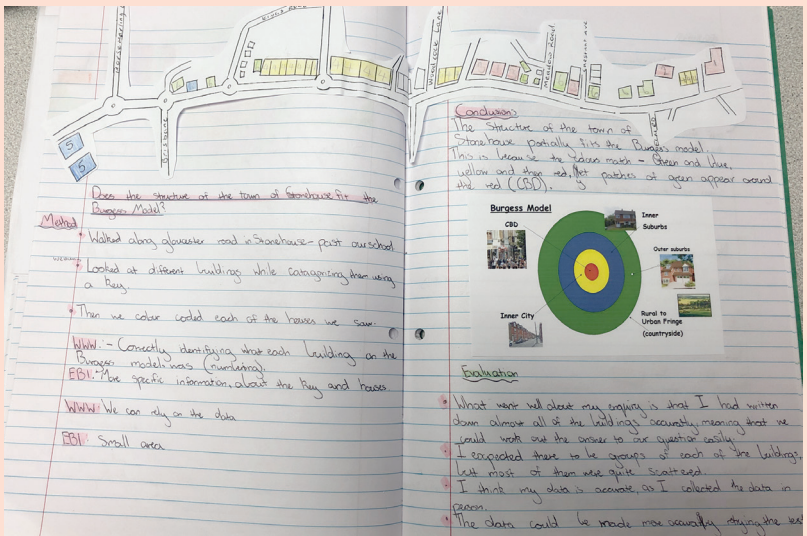 Woodcock Lane
Meadow Road
Brisbane
S
S
Does the structure of the town of Stonehouse fit the
Burgess Model?
Method
Walked along gloucester road in Stonehouse - past our school
Looked at different buildings while catagorizing them using
a key.
Then we colour coded each of the houses we saw.
WWW: - Correctly identifying what each building on the
Burgess model was (numbering).
EBI: More specific information, about the key and houses.
WWW: We can rely on the data
EBI: Small area
Conclusion:
The structure of the town of
Stonehouse partially fits the Burgess model.
This is because the colours match - Green and blue,
yellow and then red, yet patches of green appear around
the red (CBD).
Burgess Model
CBD
Inner
Suburbs
Outer suburbs
Inner City
Rural to
Urban Fringe
(countryside)
Evaluation
What went well about my enquiry is that I had written
down almost all of the buildings accuratly, meaning that we
could work out the answer to our question easily.
I expected there to be groups of each of the buildings,
but most of them were quite scattered.
I think my data is accurate, as I collected the data in
person.
The data could be made more accuratly retrying the